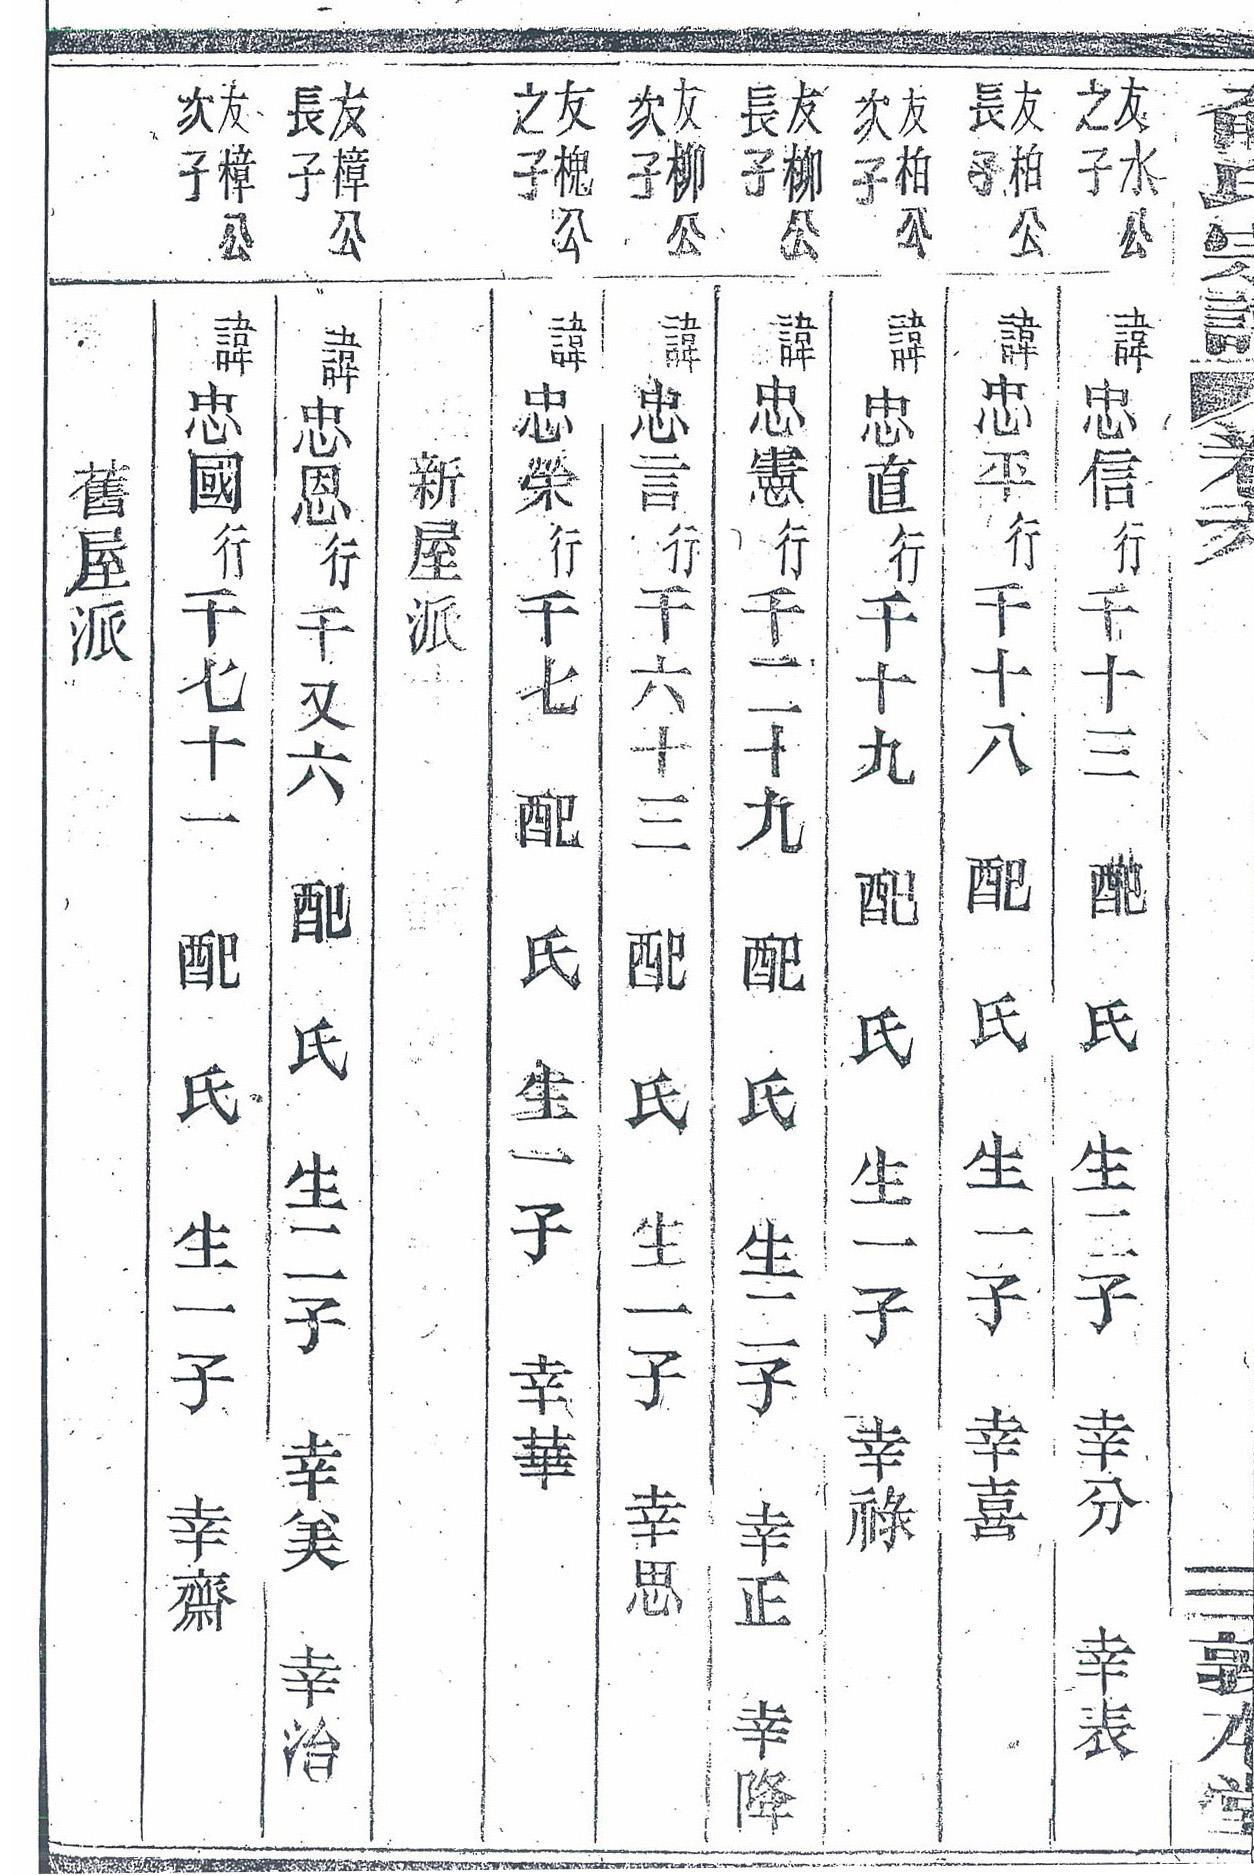 卷六
敦本堂
友水公
之子
諱忠信行千十三 配 氏 生二子 幸分 幸表
友柏公
長子
諱忠平行千十八 配 氏 生一子 幸喜
友柏公
次子
諱忠直行千十九 配 氏 生一子 幸祿
友柳公
長子
諱忠憲行千二十九 配 氏 生二子 幸正 幸降
友柳公
次子
諱忠言行千六十三 配 氏 生一子 幸思
友槐公
之子
諱忠榮行千七 配 氏 生一子 幸華
新屋派
友樟公
長子
諱忠恩行千又六 配 氏 生二子 幸美 幸治
友樟公
次子
諱忠國行千七十一 配 氏 生一子 幸齋
舊屋派